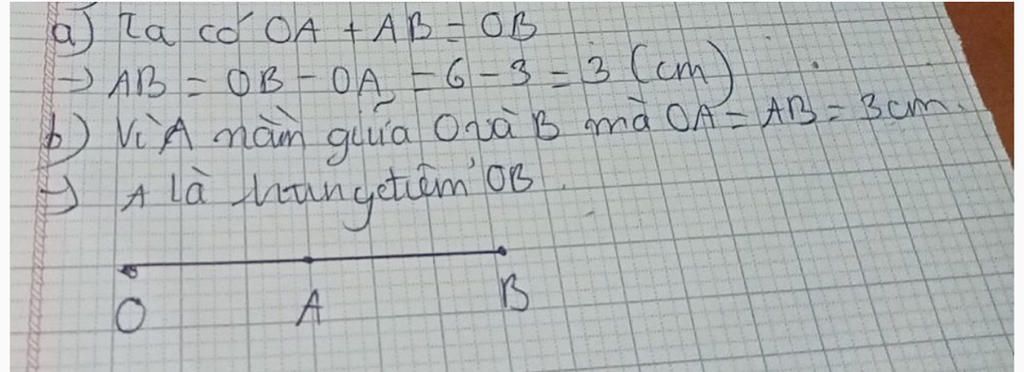 a) Ta có OA + AB = OB
→ AB = OB - OA = 6 - 3 = 3 (cm)
b) Vì A nằm giữa O và B mà OA = AB = 3cm.
→ A là trung điểm OB.
O A B